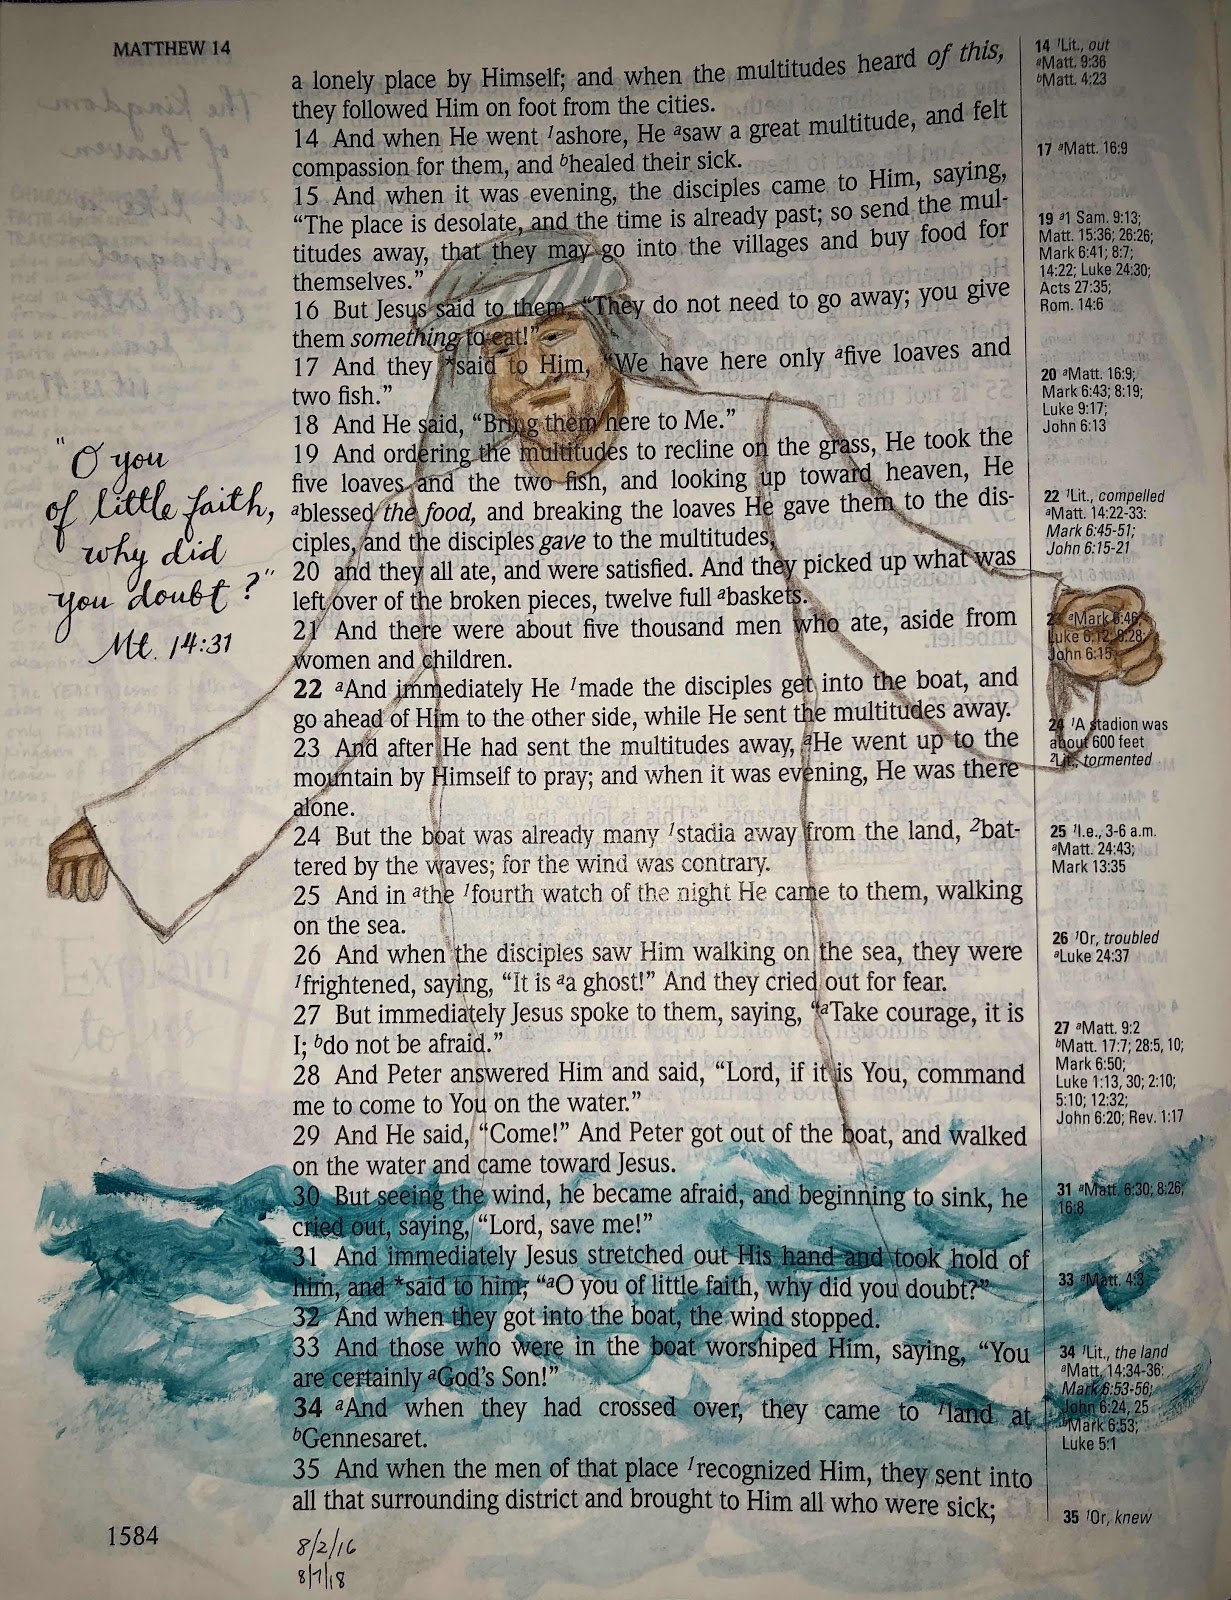 MATTHEW 14
a lonely place by Himself; and when the multitudes heard of this,
they followed Him on foot from the cities.
14 And when He went ¹ashore, He ᵃsaw a great multitude, and felt
compassion for them, and ᵇhealed their sick.
15 And when it was evening, the disciples came to Him, saying,
“The place is desolate, and the time is already past; so send the mul-
titudes away, that they may go into the villages and buy food for
themselves.”
16 But Jesus said to them, “They do not need to go away; you give
them something to eat!”
17 And they *said to Him, “We have here only ᵃfive loaves and
two fish.”
18 And He said, “Bring them here to Me.”
19 And ordering the multitudes to recline on the grass, He took the
five loaves and the two fish, and looking up toward heaven, He
ᵃblessed the food, and breaking the loaves He gave them to the dis-
ciples, and the disciples gave to the multitudes,
20 and they all ate, and were satisfied. And they picked up what was
left over of the broken pieces, twelve full ᵃbaskets.
21 And there were about five thousand men who ate, aside from
women and children.
22 ᵃAnd immediately He ¹made the disciples get into the boat, and
go ahead of Him to the other side, while He sent the multitudes away.
23 And after He had sent the multitudes away, ᵃHe went up to the
mountain by Himself to pray; and when it was evening, He was there
alone.
24 But the boat was already many ¹stadia away from the land, ²bat-
tered by the waves; for the wind was contrary.
25 And in ᵃthe ¹fourth watch of the night He came to them, walking
on the sea.
26 And when the disciples saw Him walking on the sea, they were
¹frightened, saying, “It is ᵃa ghost!” And they cried out for fear.
27 But immediately Jesus spoke to them, saying, “ᵃTake courage, it is
I; ᵇdo not be afraid.”
28 And Peter answered Him and said, “Lord, if it is You, command
me to come to You on the water.”
29 And He said, “Come!” And Peter got out of the boat, and walked
on the water and came toward Jesus.
30 But seeing the wind, he became afraid, and beginning to sink, he
cried out, saying, “Lord, save me!”
31 And immediately Jesus stretched out His hand and took hold of
him, and *said to him, “ᵃO you of little faith, why did you doubt?”
32 And when they got into the boat, the wind stopped.
33 And those who were in the boat worshiped Him, saying, “You
are certainly ᵃGod’s Son!”
34 ᵃAnd when they had crossed over, they came to ¹land at
ᵇGennesaret.
35 And when the men of that place ¹recognized Him, they sent into
all that surrounding district and brought to Him all who were sick;
14 ¹Lit., out
ᵃMatt. 9:36
ᵇMatt. 4:23
17 ᵃMatt. 16:9
19 ᵃ1 Sam. 9:13;
Matt. 15:36; 26:26;
Mark 6:41; 8:7;
14:22; Luke 24:30;
Acts 27:35;
Rom. 14:6
20 ᵃMatt. 16:9;
Mark 6:43; 8:19;
Luke 9:17;
John 6:13
22 ¹Lit., compelled
ᵃMatt. 14:22-33:
Mark 6:45-51;
John 6:15-21
23 ᵃMark 6:46;
Luke 6:12; 9:28;
John 6:15
24 ¹A stadion was
about 600 feet
²Lit., tormented
25 ¹I.e., 3-6 a.m.
ᵃMatt. 24:43;
Mark 13:35
26 ¹Or, troubled
ᵃLuke 24:37
27 ᵃMatt. 9:2
ᵇMatt. 17:7; 28:5, 10;
Mark 6:50;
Luke 1:13, 30; 2:10;
5:10; 12:32;
John 6:20; Rev. 1:17
31 ᵃMatt. 6:30; 8:26;
16:8
33 ᵃMatt. 4:3
34 ¹Lit., the land
ᵃMatt. 14:34-36:
Mark 6:53-56;
John 6:24, 25
ᵇMark 6:53;
Luke 5:1
35 ¹Or, knew
"O you
of little faith,
why did
you doubt?"
Mt. 14:31
1584
8/2/16
8/7/18